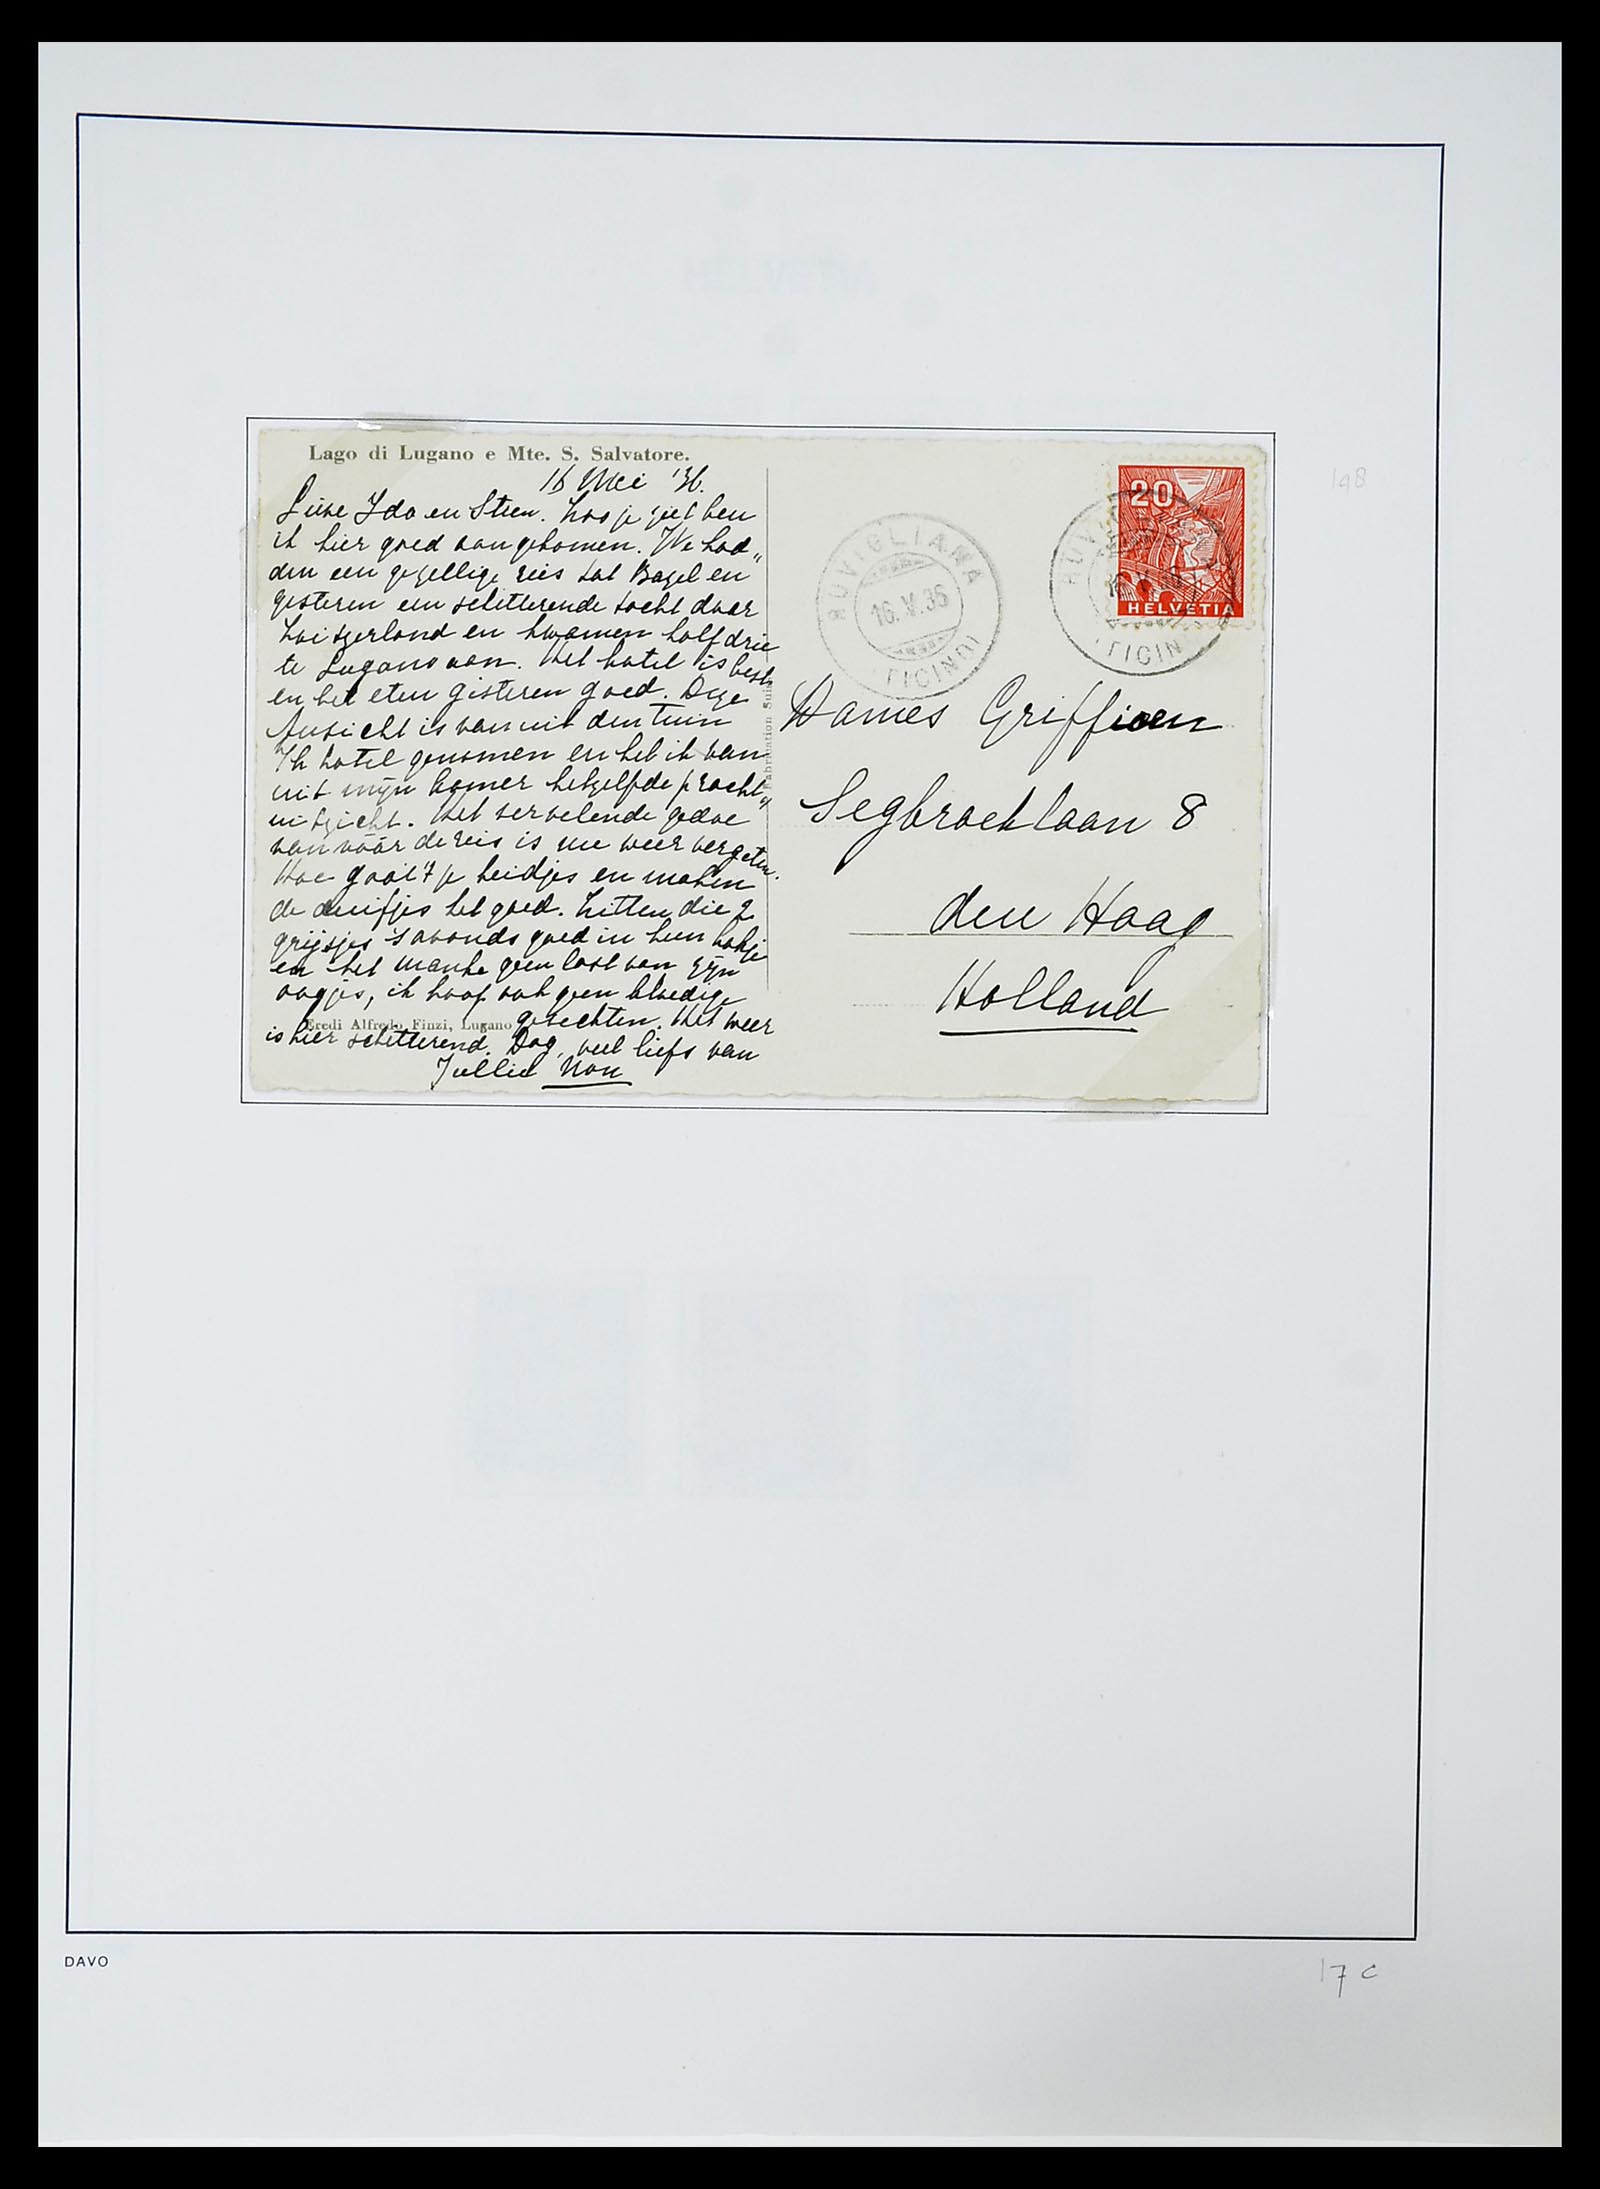 Lago di Lugano e Mte. S. Salvatore.
16 Mei '36.
Lieve Ida en Steen. Zoo je ziet ben
ik hier goed aangekomen. We had„
den een gezellige reis tot Bazel en
gisteren een schitterende tocht door
Zwitzerland en kwamen half drie
te Lugano aan. Het hotel is best
en het eten gisteren goed. Deze
Ansicht is van uit den tuin
v/h hotel genomen en heb ik van
uit mijn kamer hetzelfde pracht„
uitzicht. Het vervelende gedoe
van vóór de reis is nu weer vergeten.
Hoe gaat 't je heidjes en maken
de duifjes het goed. Zitten die 2
grijsjes 's avonds goed in hun hokje
en het manke geen last van zijn
oogjes, ik hoop ook geen bloedige
gevechten. Het weer
is hier schitterend. Dag, veel liefs van
Jullie Non
Eredi Alfredo Finzi, Lugano
Fabrication Suisse
RUVIGLIANA
16.V.36
(TICINO)
20
HELVETIA
RUVIGLIANA
TICIN
Dames Griffioen
Segbroeklaan 8
den Haag
Holland
198
DAVO
17 c
HELVETIA